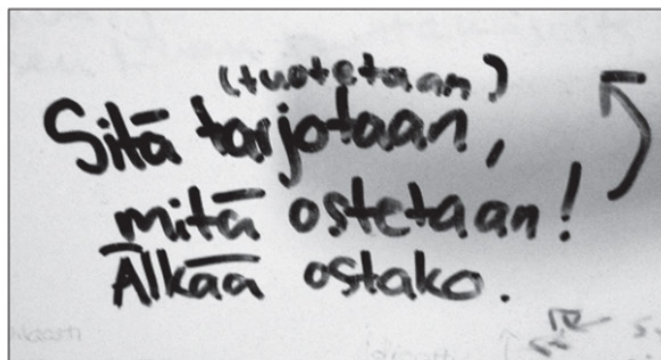 (tuotetaan)
Sitä tarjotaan,
mitä ostetaan!
Älkää ostako.